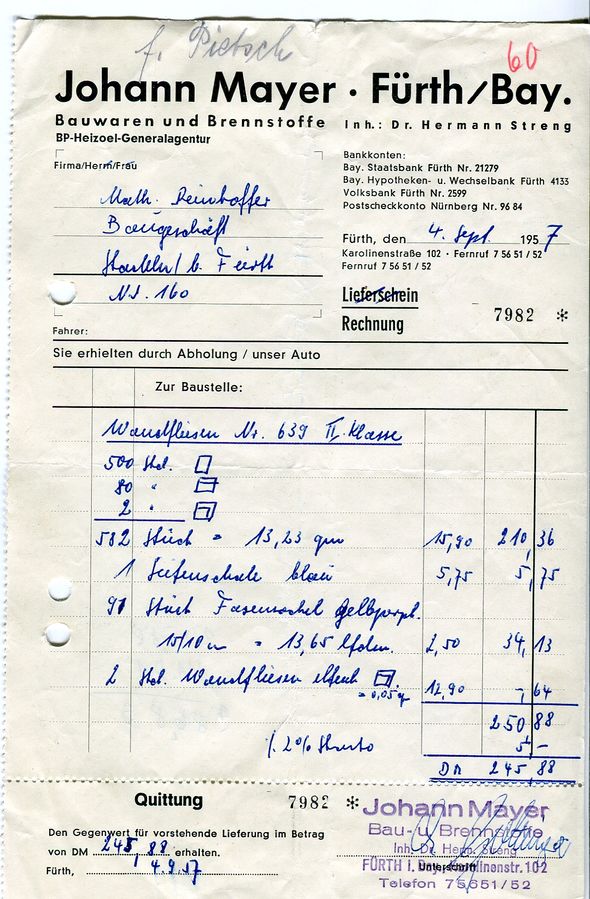 f. Pietsch
60
Johann Mayer · Fürth/Bay.
Bauwaren und Brennstoffe Inh.: Dr. Hermann Streng
BP-Heizoel-Generalagentur
Firma/Herrn/Frau
Bankkonten:
Bay. Staatsbank Fürth Nr. 21279
Bay. Hypotheken- u. Wechselbank Fürth 4133
Volksbank Fürth Nr. 2599
Postscheckkonto Nürnberg Nr. 96 84
Math.
Baugeschäft
b. Fürth
Nr. 160
Fürth, den 4. Sept. 1957
Karolinenstraße 102 · Fernruf 7 56 51 / 52
Fernruf 7 56 51 / 52
Lieferschein
Rechnung
7982 *
Fahrer:
Sie erhielten durch Abholung / unser Auto
Zur Baustelle:
Wandfliesen Nr. 639 II. Klasse
500 Stck.
80 "
2 "
582 Stück = 13,23 qm 15,90 210,36
1 Seifenschale blau 5,75 5,75
91 Stück Fasensockel gelbporph.
15/10 = 13,65 lfdm. 2,50 34,13
2 Stck. Wandfliesen elfenb.
= 0,05 q 12,90 -,64
250,88
./. 2% Skonto 5,-
DM 245,88
Quittung
7982 *
Den Gegenwert für vorstehende Lieferung im Betrag
von DM 245,88 erhalten.
Fürth, 4.9.57
Johann Mayer
Bau- u. Brennstoffe
Inh. Dr. Herm. Streng
FÜRTH i. Bay., Karolinenstr. 102
Unterschrift
Telefon 75651/52